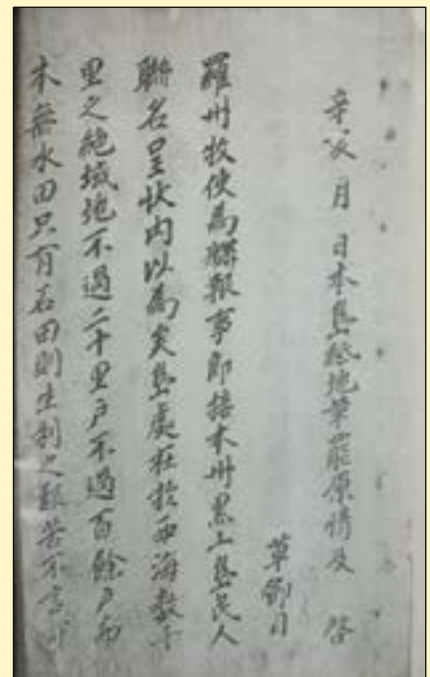 辛亥 月 日本島紙地革罷原情及 啓
草節目
羅州牧使爲牒報事卽接本州黑山島民人
聯名呈狀內以爲矣島處在於西海數千
里之絶域地不過二十里戶不過百餘戶而
本無水田只有石田則生利之艱苦不言可